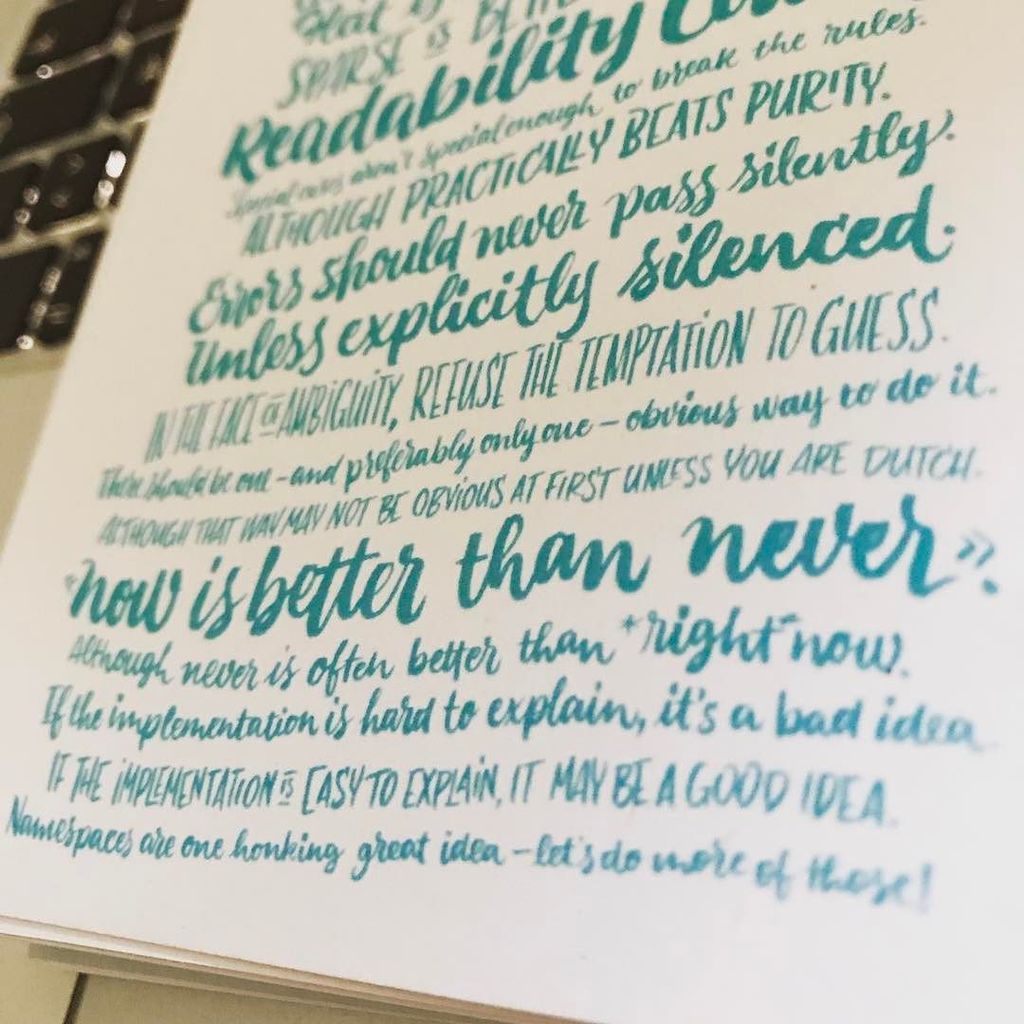 Flat is
SPARSE IS BETT
Readability Cou
Special cases aren't special enough to break the rules.
ALTHOUGH PRACTICALLY BEATS PURITY.
Errors should never pass silently.
Unless explicitly silenced.
IN THE FACE OF AMBIGUITY, REFUSE THE TEMPTATION TO GUESS.
There should be one - and preferably only one - obvious way to do it.
ALTHOUGH THAT WAY MAY NOT BE OBVIOUS AT FIRST UNLESS YOU ARE DUTCH.
"now is better than never".
Although never is often better than *right* now.
If the implementation is hard to explain, it's a bad idea
IF THE IMPLEMENTATION IS EASY TO EXPLAIN, IT MAY BE A GOOD IDEA.
Namespaces are one honking great idea - let's do more of those!